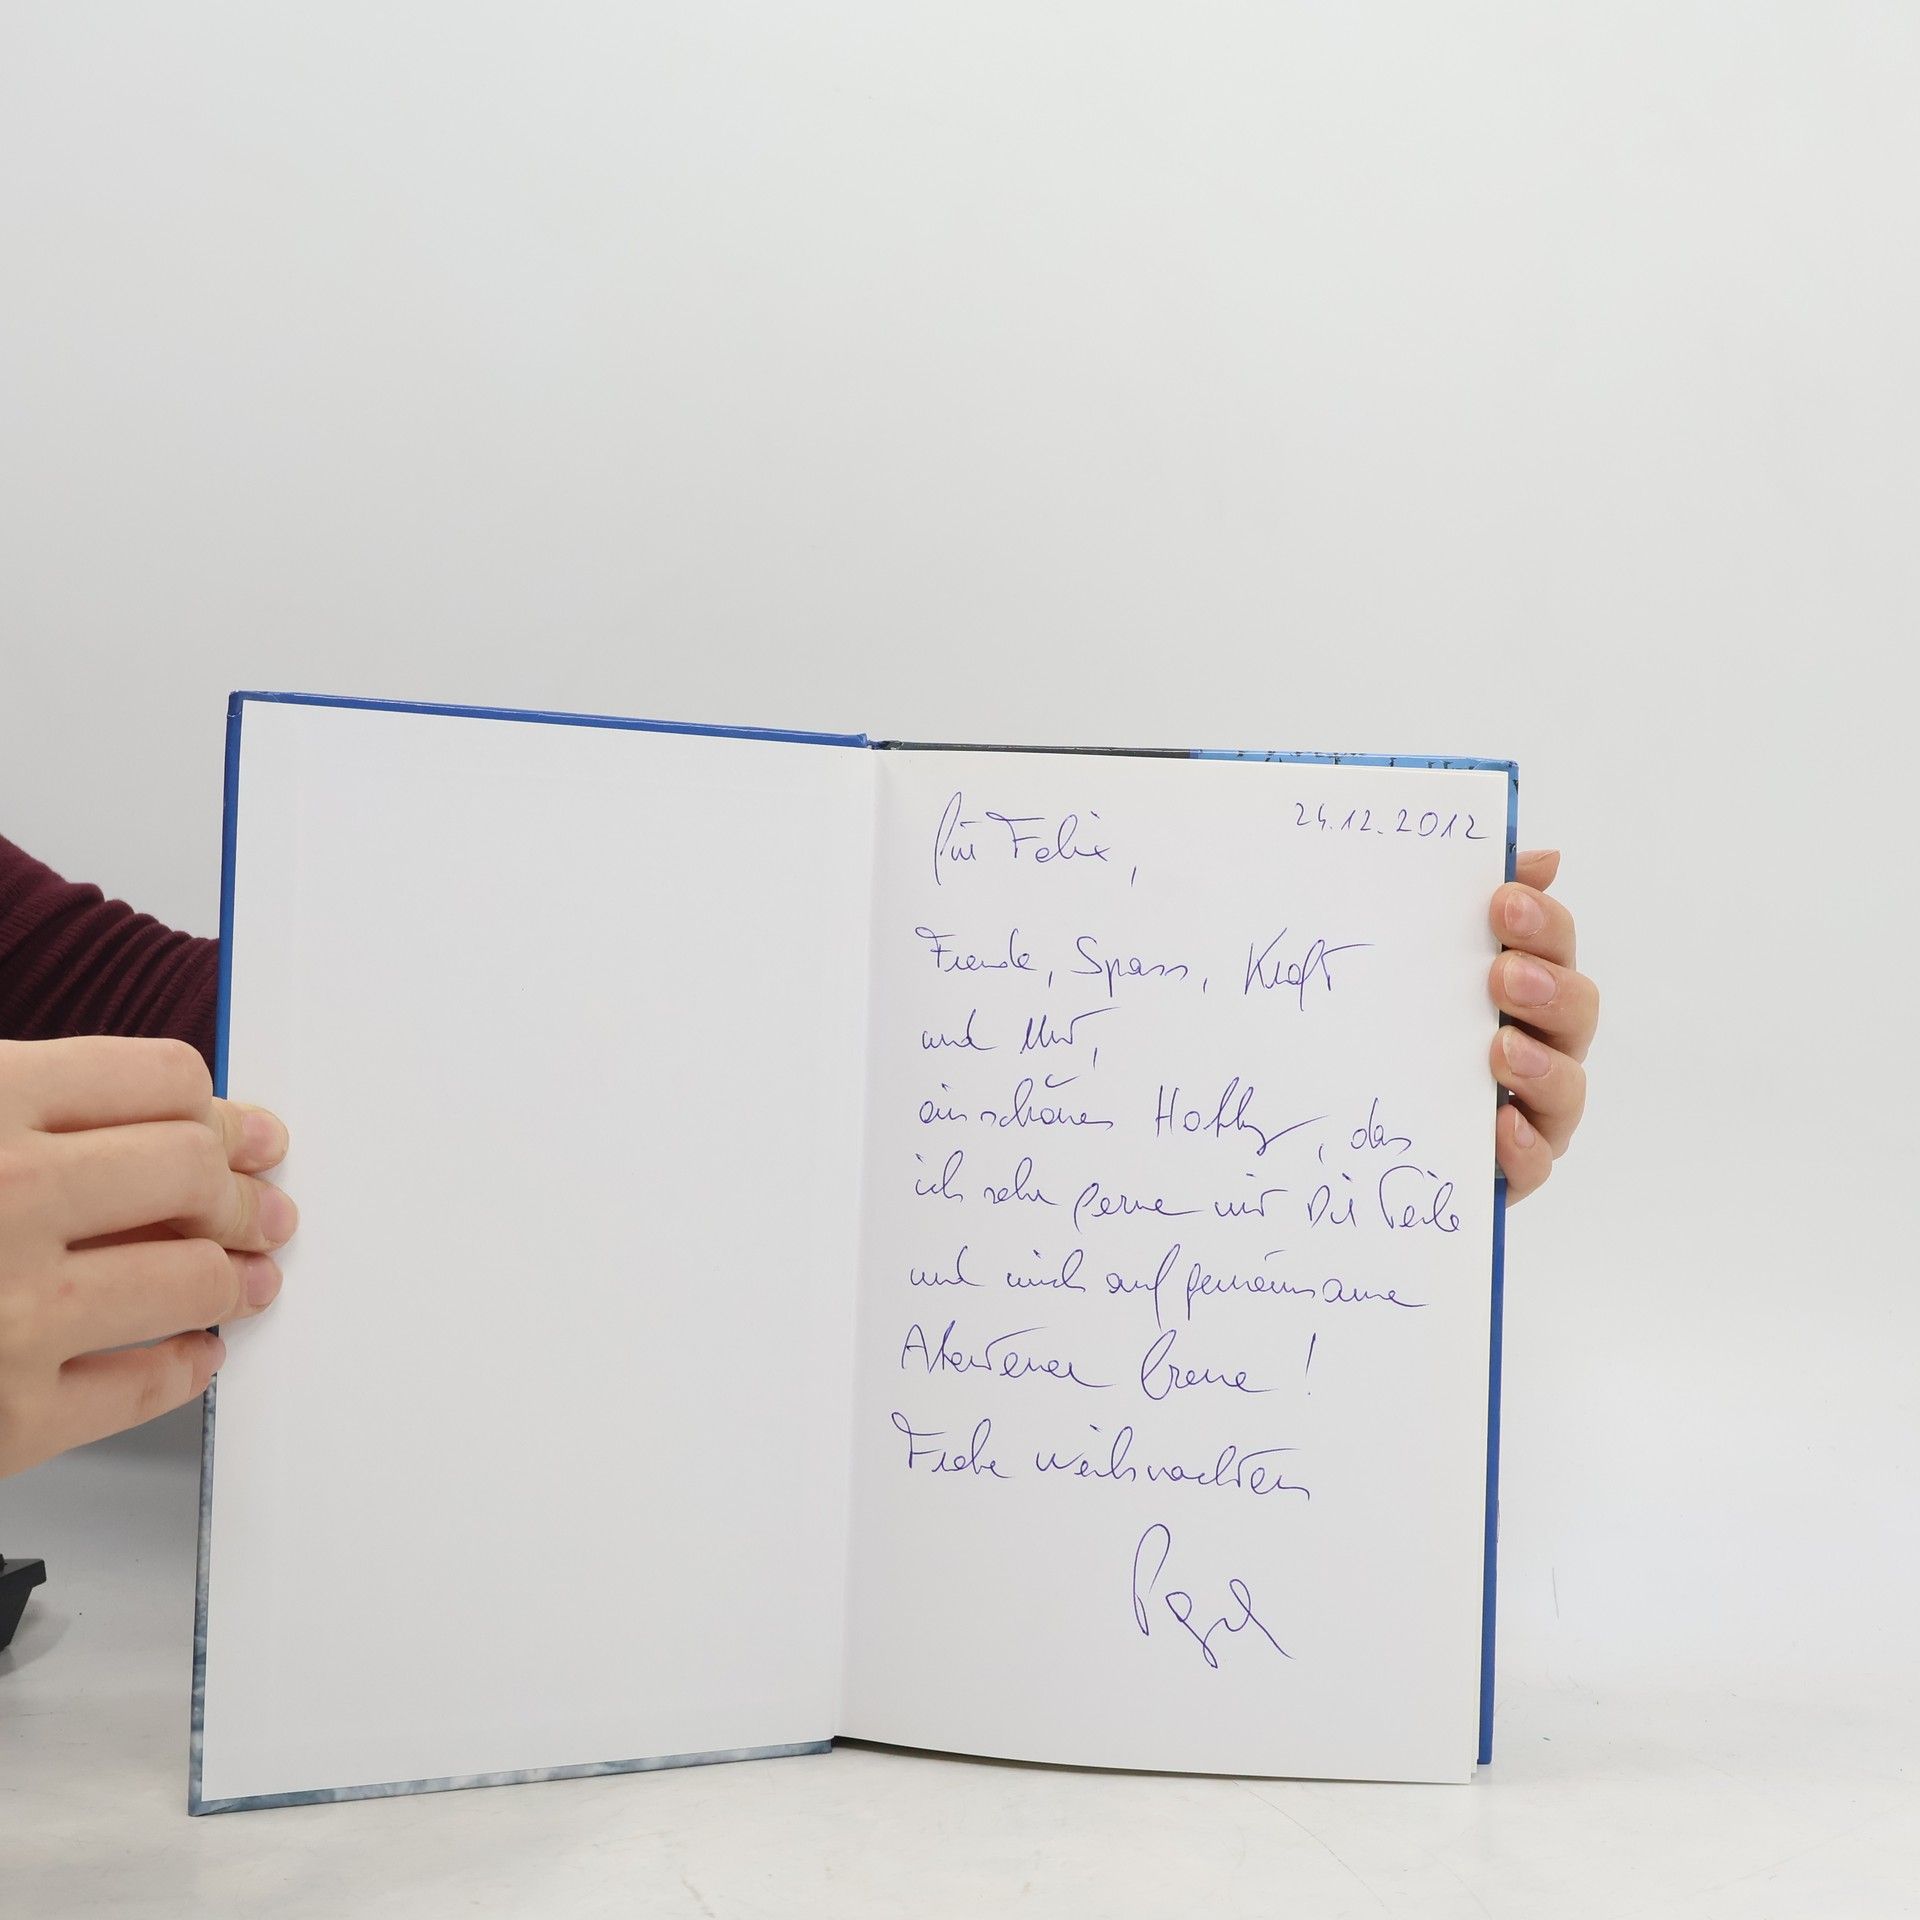 24.12.2012
für Felix,
Freude, Spass, Kraft
und Mut,
ein schönes Hobby, das
ich sehr gerne mit Dir Teile
und mich auf gemeinsame
Abenteuer freue!
Frohe Weihnachten